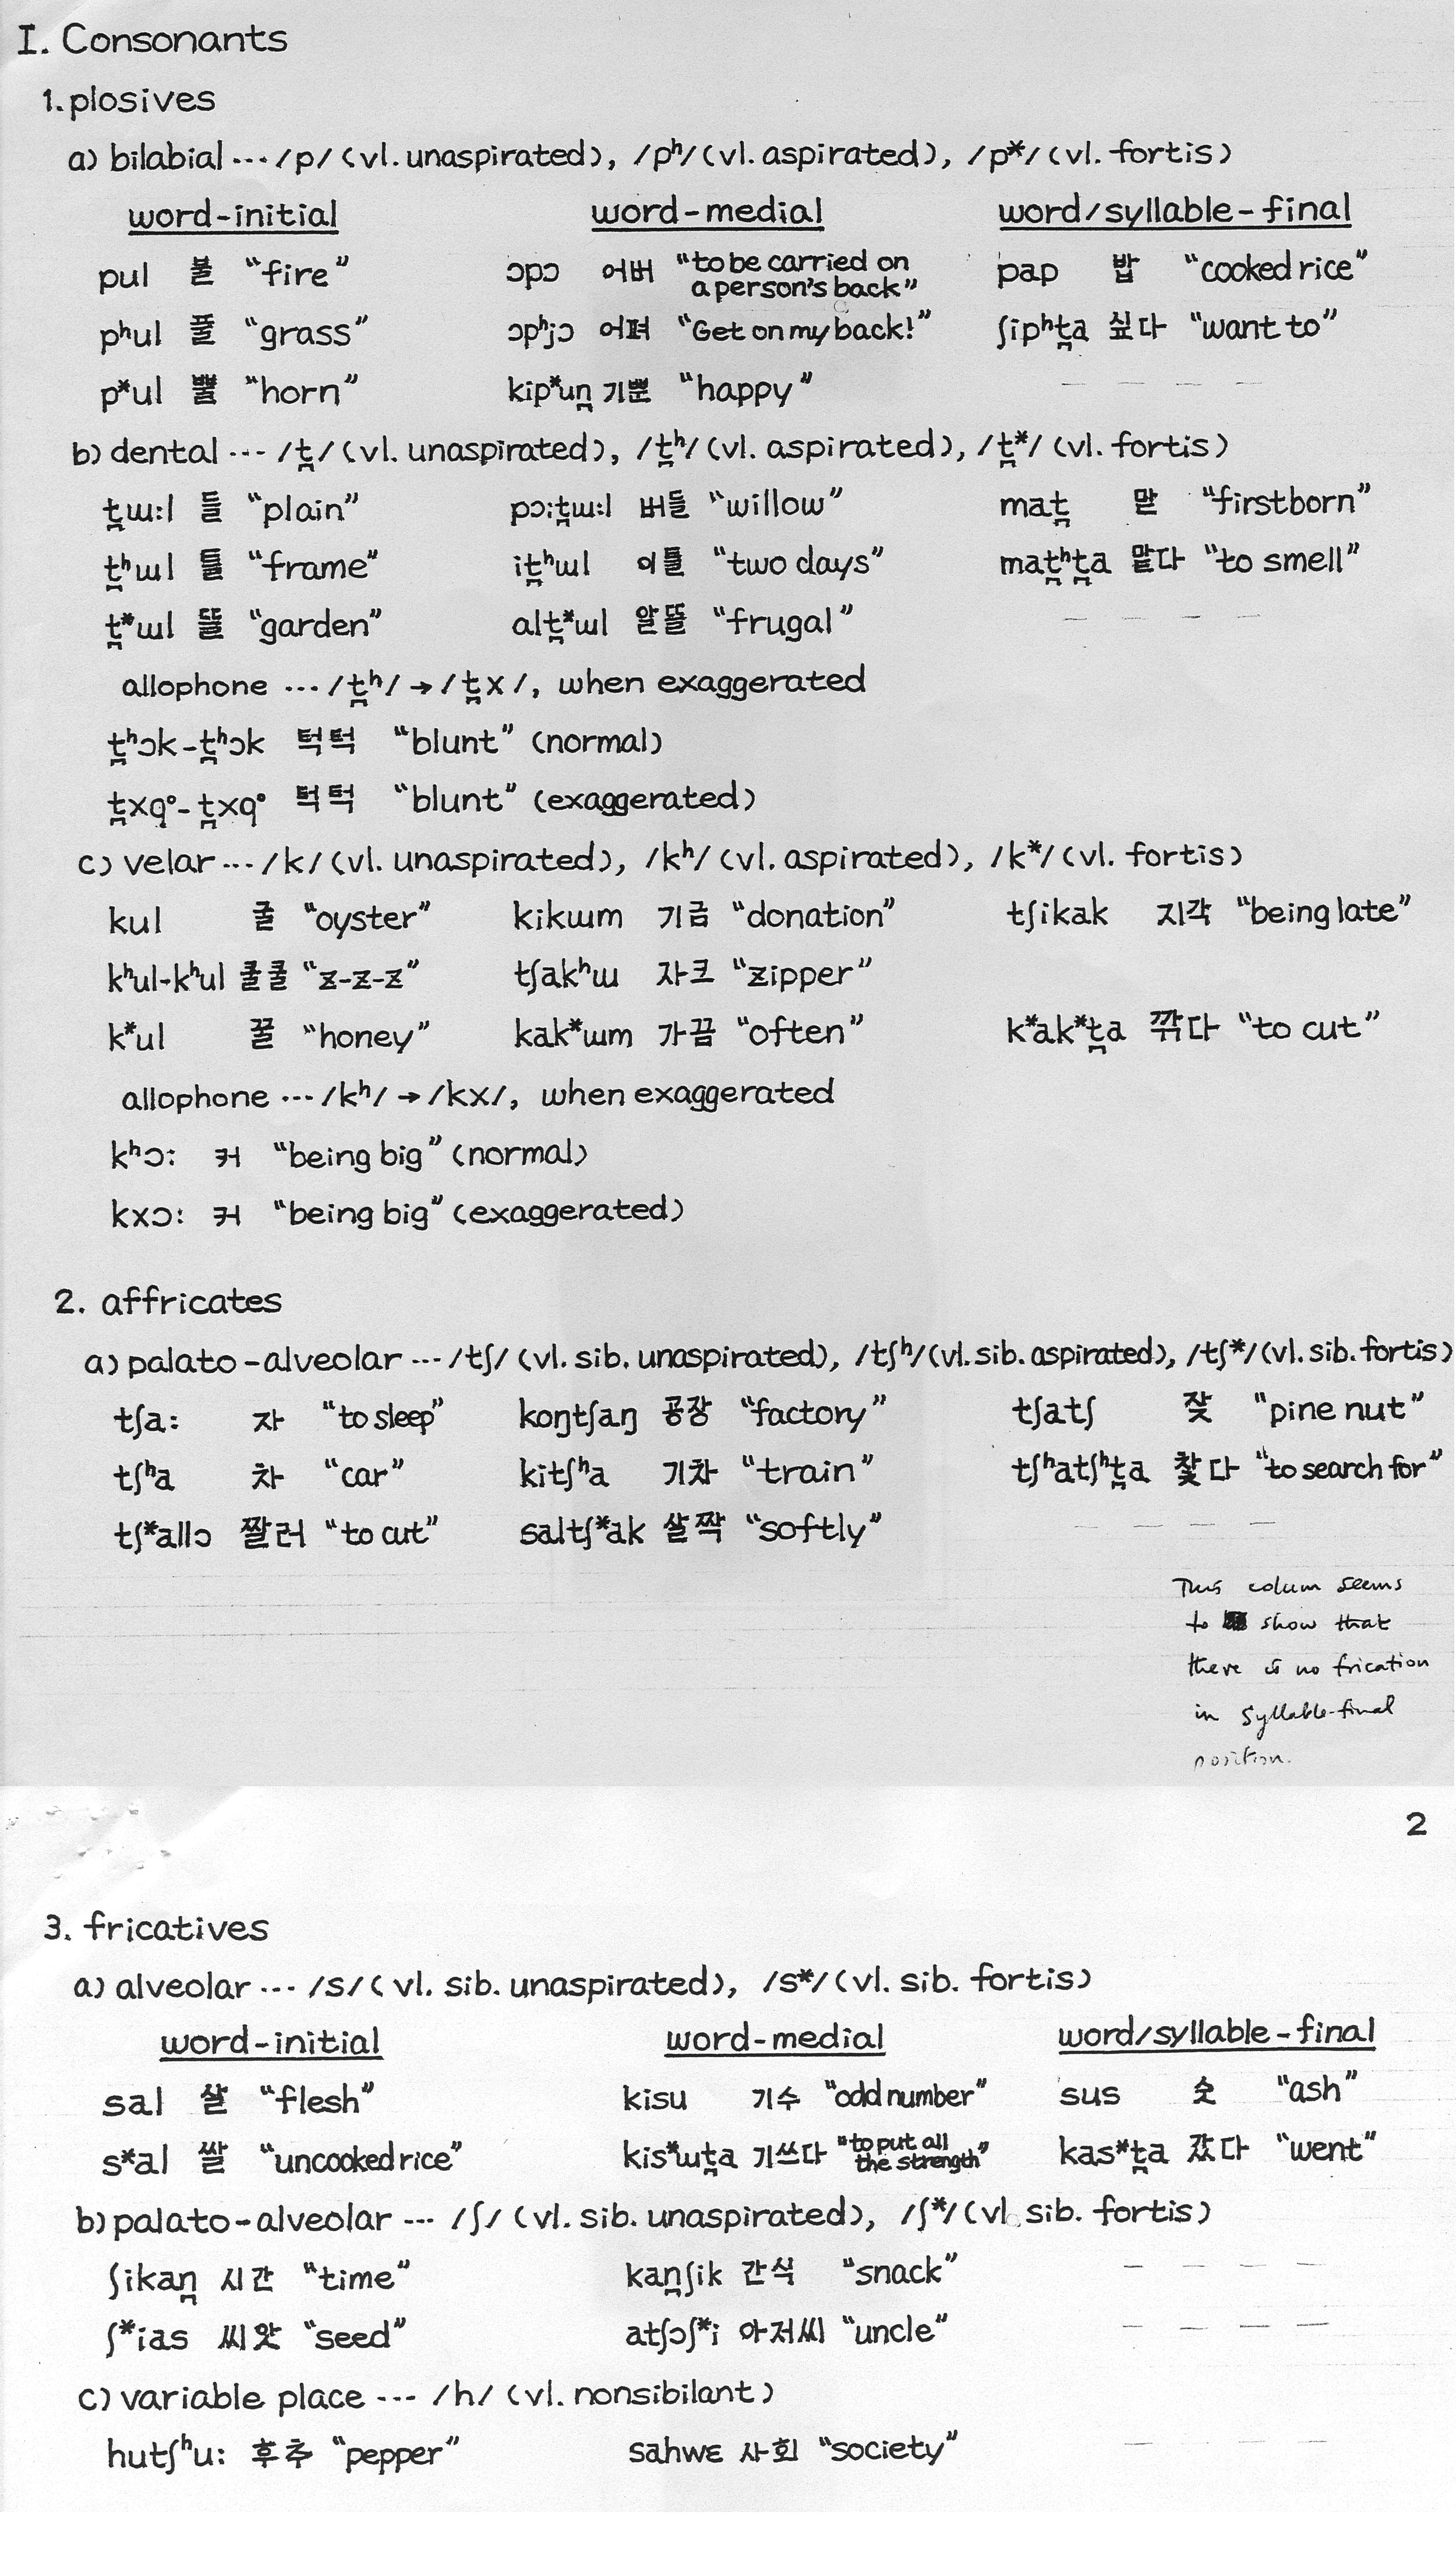 I. Consonants
1. plosives
a) bilabial --- /p/ (vl. unaspirated), /pʰ/ (vl. aspirated), /p*/ (vl. fortis)
word-initial word-medial word/syllable-final
pul 불 "fire" ɔpɔ 어버 "to be carried on a person's back" pap 밥 "cooked rice"
pʰul 풀 "grass" ɔpʰjɔ 어펴 "Get on my back!" ʃipʰt̪a 싶다 "want to"
p*ul 뿔 "horn" kip*un̪ 기뿐 "happy" – – – –
b) dental --- /t̪/ (vl. unaspirated), /t̪ʰ/ (vl. aspirated), /t̪*/ (vl. fortis)
t̪ɯ:l 들 "plain" pɔ:t̪ɯ:l 버들 "willow" mat̪ 맏 "firstborn"
t̪ʰɯl 틀 "frame" it̪ʰɯl 이틀 "two days" mat̪ʰt̪a 맡다 "to smell"
t̪*ɯl 뜰 "garden" alt̪*ɯl 알뜰 "frugal" – – – –
allophone --- /t̪ʰ/ → /t̪x/, when exaggerated
t̪ʰɔk-t̪ʰɔk 턱턱 "blunt" (normal)
t̪xq°-t̪xq° 턱턱 "blunt" (exaggerated)
c) velar --- /k/ (vl. unaspirated), /kʰ/ (vl. aspirated), /k*/ (vl. fortis)
kul 굴 "oyster" kikɯm 기금 "donation" tʃikak 지각 "being late"
kʰul-kʰul 쿨쿨 "z-z-z" tʃakʰɯ 자크 "zipper"
k*ul 꿀 "honey" kak*ɯm 가끔 "often" k*ak*t̪a 깎다 "to cut"
allophone --- /kʰ/ → /kx/, when exaggerated
kʰɔ: 커 "being big" (normal)
kxɔ: 커 "being big" (exaggerated)
2. affricates
a) palato-alveolar --- /tʃ/ (vl. sib. unaspirated), /tʃʰ/ (vl. sib. aspirated), /tʃ*/ (vl. sib. fortis)
tʃa: 자 "to sleep" koŋtʃaŋ 공장 "factory" tʃatʃ 잦 "pine nut"
tʃʰa 차 "car" kitʃʰa 기차 "train" tʃʰatʃʰt̪a 찾다 "to search for"
tʃ*allɔ 짤러 "to cut" saltʃ*ak 살짝 "softly" – – – –
This colum seems
to show that
there is no frication
in syllable-final
position.
2
3. fricatives
a) alveolar --- /s/ (vl. sib. unaspirated), /s*/ (vl. sib. fortis)
word-initial word-medial word/syllable-final
sal 살 "flesh" kisu 기수 "odd number" sus 숫 "ash"
s*al 쌀 "uncooked rice" kis*ɯt̪a 기쓰다 "to put all the strength" kas*t̪a 갔다 "went"
b) palato-alveolar --- /ʃ/ (vl. sib. unaspirated), /ʃ*/ (vl. sib. fortis)
ʃikan̪ 시간 "time" kan̪ʃik 간식 "snack" – – – –
ʃ*ias 씨앗 "seed" atʃɔʃ*i 아저씨 "uncle" – – – –
c) variable place --- /h/ (vl. nonsibilant)
hutʃʰu: 후추 "pepper" sahwɛ 사회 "society" – – – –